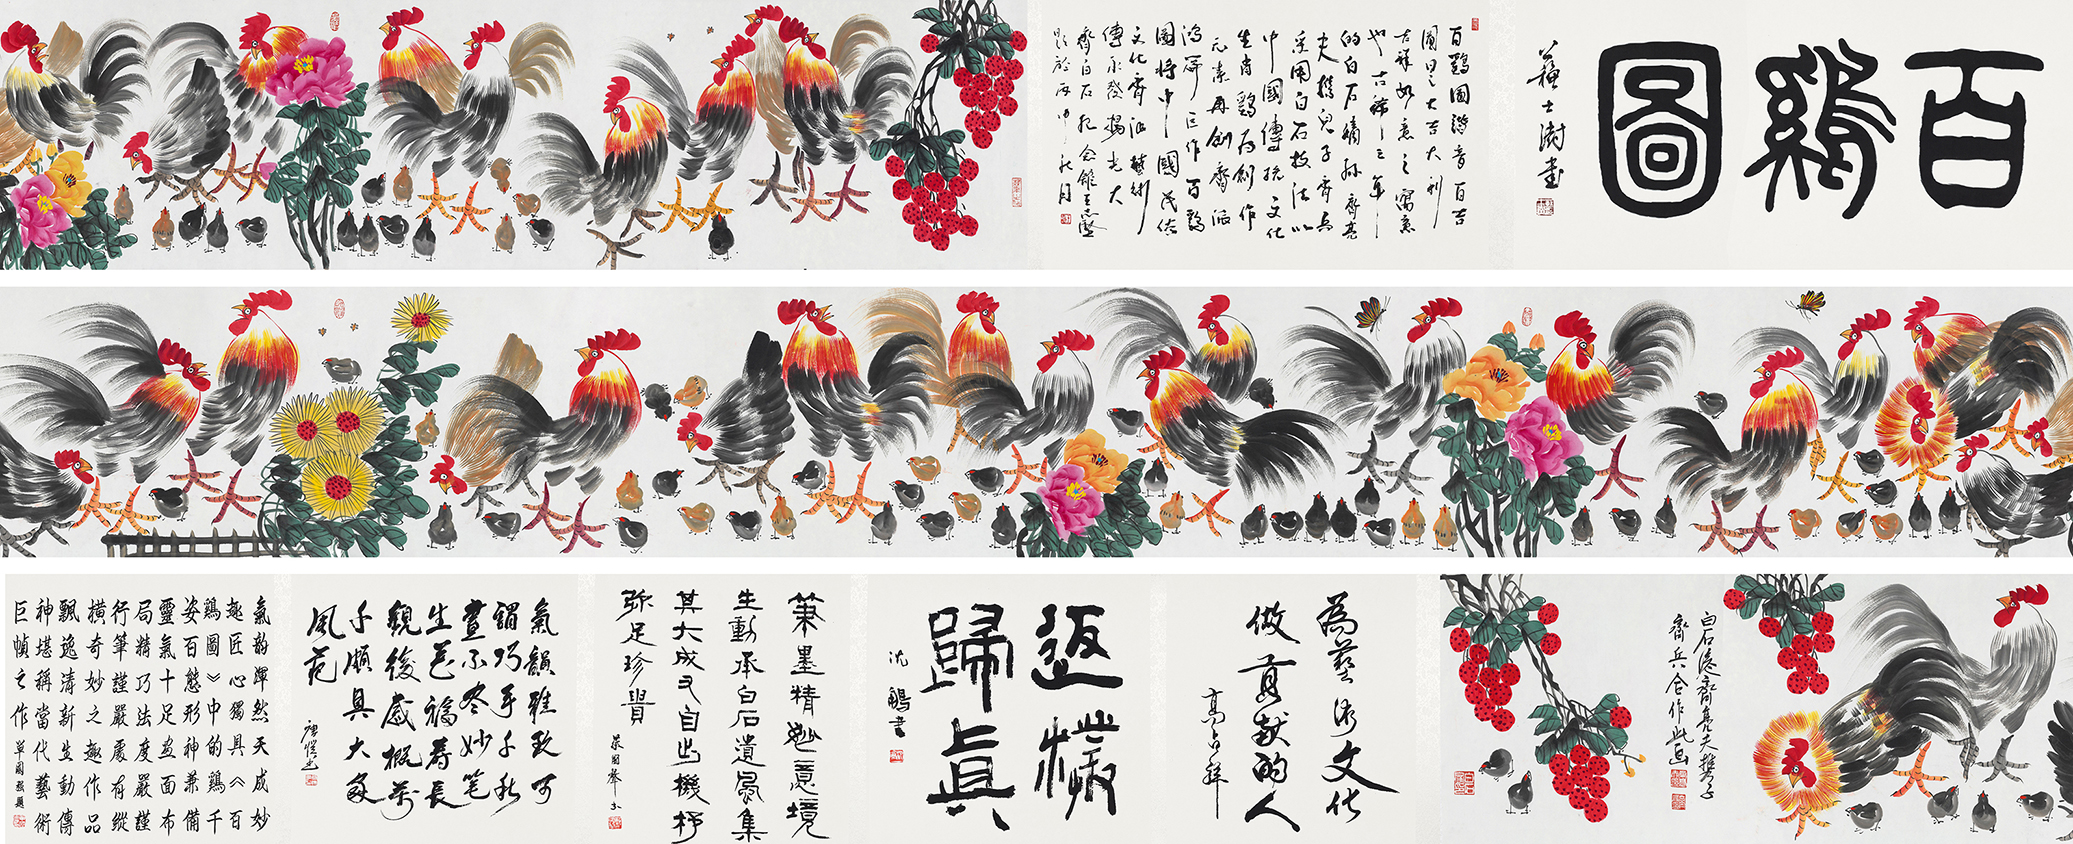 百鷄圖
蘇士澍書
百鷄圖諧音百吉
圖曰之大吉大利
吉祥如意之寓意
也古稀之年
的白石嫡孫齊亮
夫攜兒子齊兵
采用白石技法以
中國傳統文化
生肖鷄爲創作
元素再創齊派
鴻篇巨作百鷄
圖將中國民俗
文化齊派藝術
傳承發揚光大
齊白石紀念館王志堅
題於丙申秋月
白石後齋亮夫攜子
齊兵合作此画
為藝術文化
做貢献的人
高占祥
返樸
歸真
沈鵬書
筆墨精妙意境
生動承白石遺風集
其大成又自出機杼
弥足珍貴
氣韻雅致可
謂巧手千秋
畫不冬妙笔
生花福壽長
觀後感慨萬
千頗具大家
風范
氣韵渾然天成妙
趣匠心獨具《百
鷄圖》中的鷄千
姿百態形神兼備
靈氣十足畫面布
局精巧法度嚴謹
行筆謹嚴處有縱
橫奇妙之趣作品
飄逸清新生動傳
神堪稱當代藝術
巨幀之作單國强題